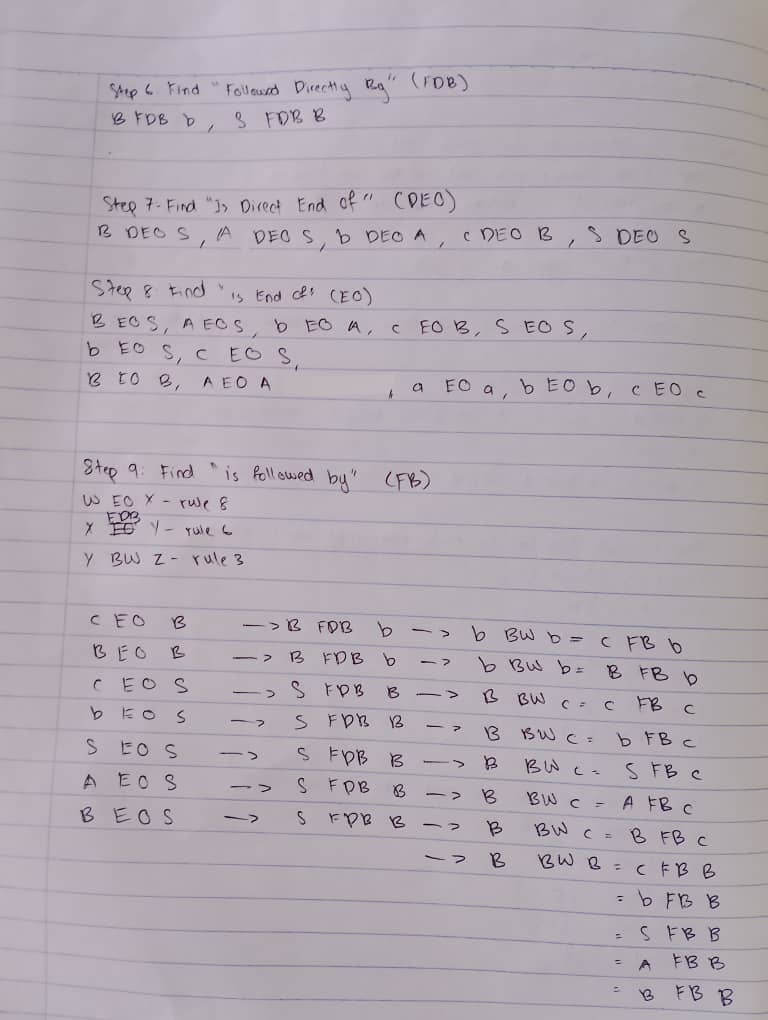 Step 6 Find "Followed Directly By" (FDB)
B FDB b, S FDB B
Step 7- Find "Is Direct End of" (DEO)
B DEO S, A DEO S, b DEO A, c DEO B, S DEO S
Step 8 Find "is End of" (EO)
B EO S, A EO S, b EO A, c EO B, S EO S,
b EO S, c EO S,
B EO B, A EO A , a EO a, b EO b, c EO c
Step 9: Find "is followed by" (FB)
W EO X - rule 8
X FDB Y - rule 6
Y BW Z - rule 3
c EO B -> B FDB b -> b BW b = c FB b
B EO B -> B FDB b -> b BW b = B FB b
c EO S -> S FDB B -> B BW c = c FB c
b EO S -> S FDB B -> B BW c = b FB c
S EO S -> S FDB B -> B BW c = S FB c
A EO S -> S FDB B -> B BW c = A FB c
B EO S -> S FDB B -> B BW c = B FB c
-> B BW B = c FB B
= b FB B
= S FB B
= A FB B
= B FB B